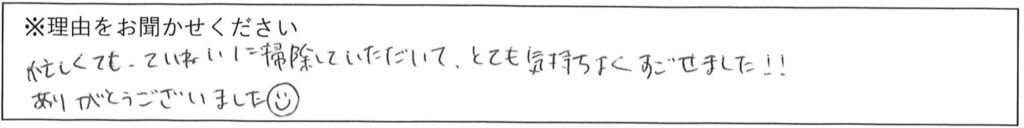 ※理由をお聞かせください
忙しくても、ていねいに掃除していただいて、とても気持ちよくすごせました!!
ありがとうございました☺